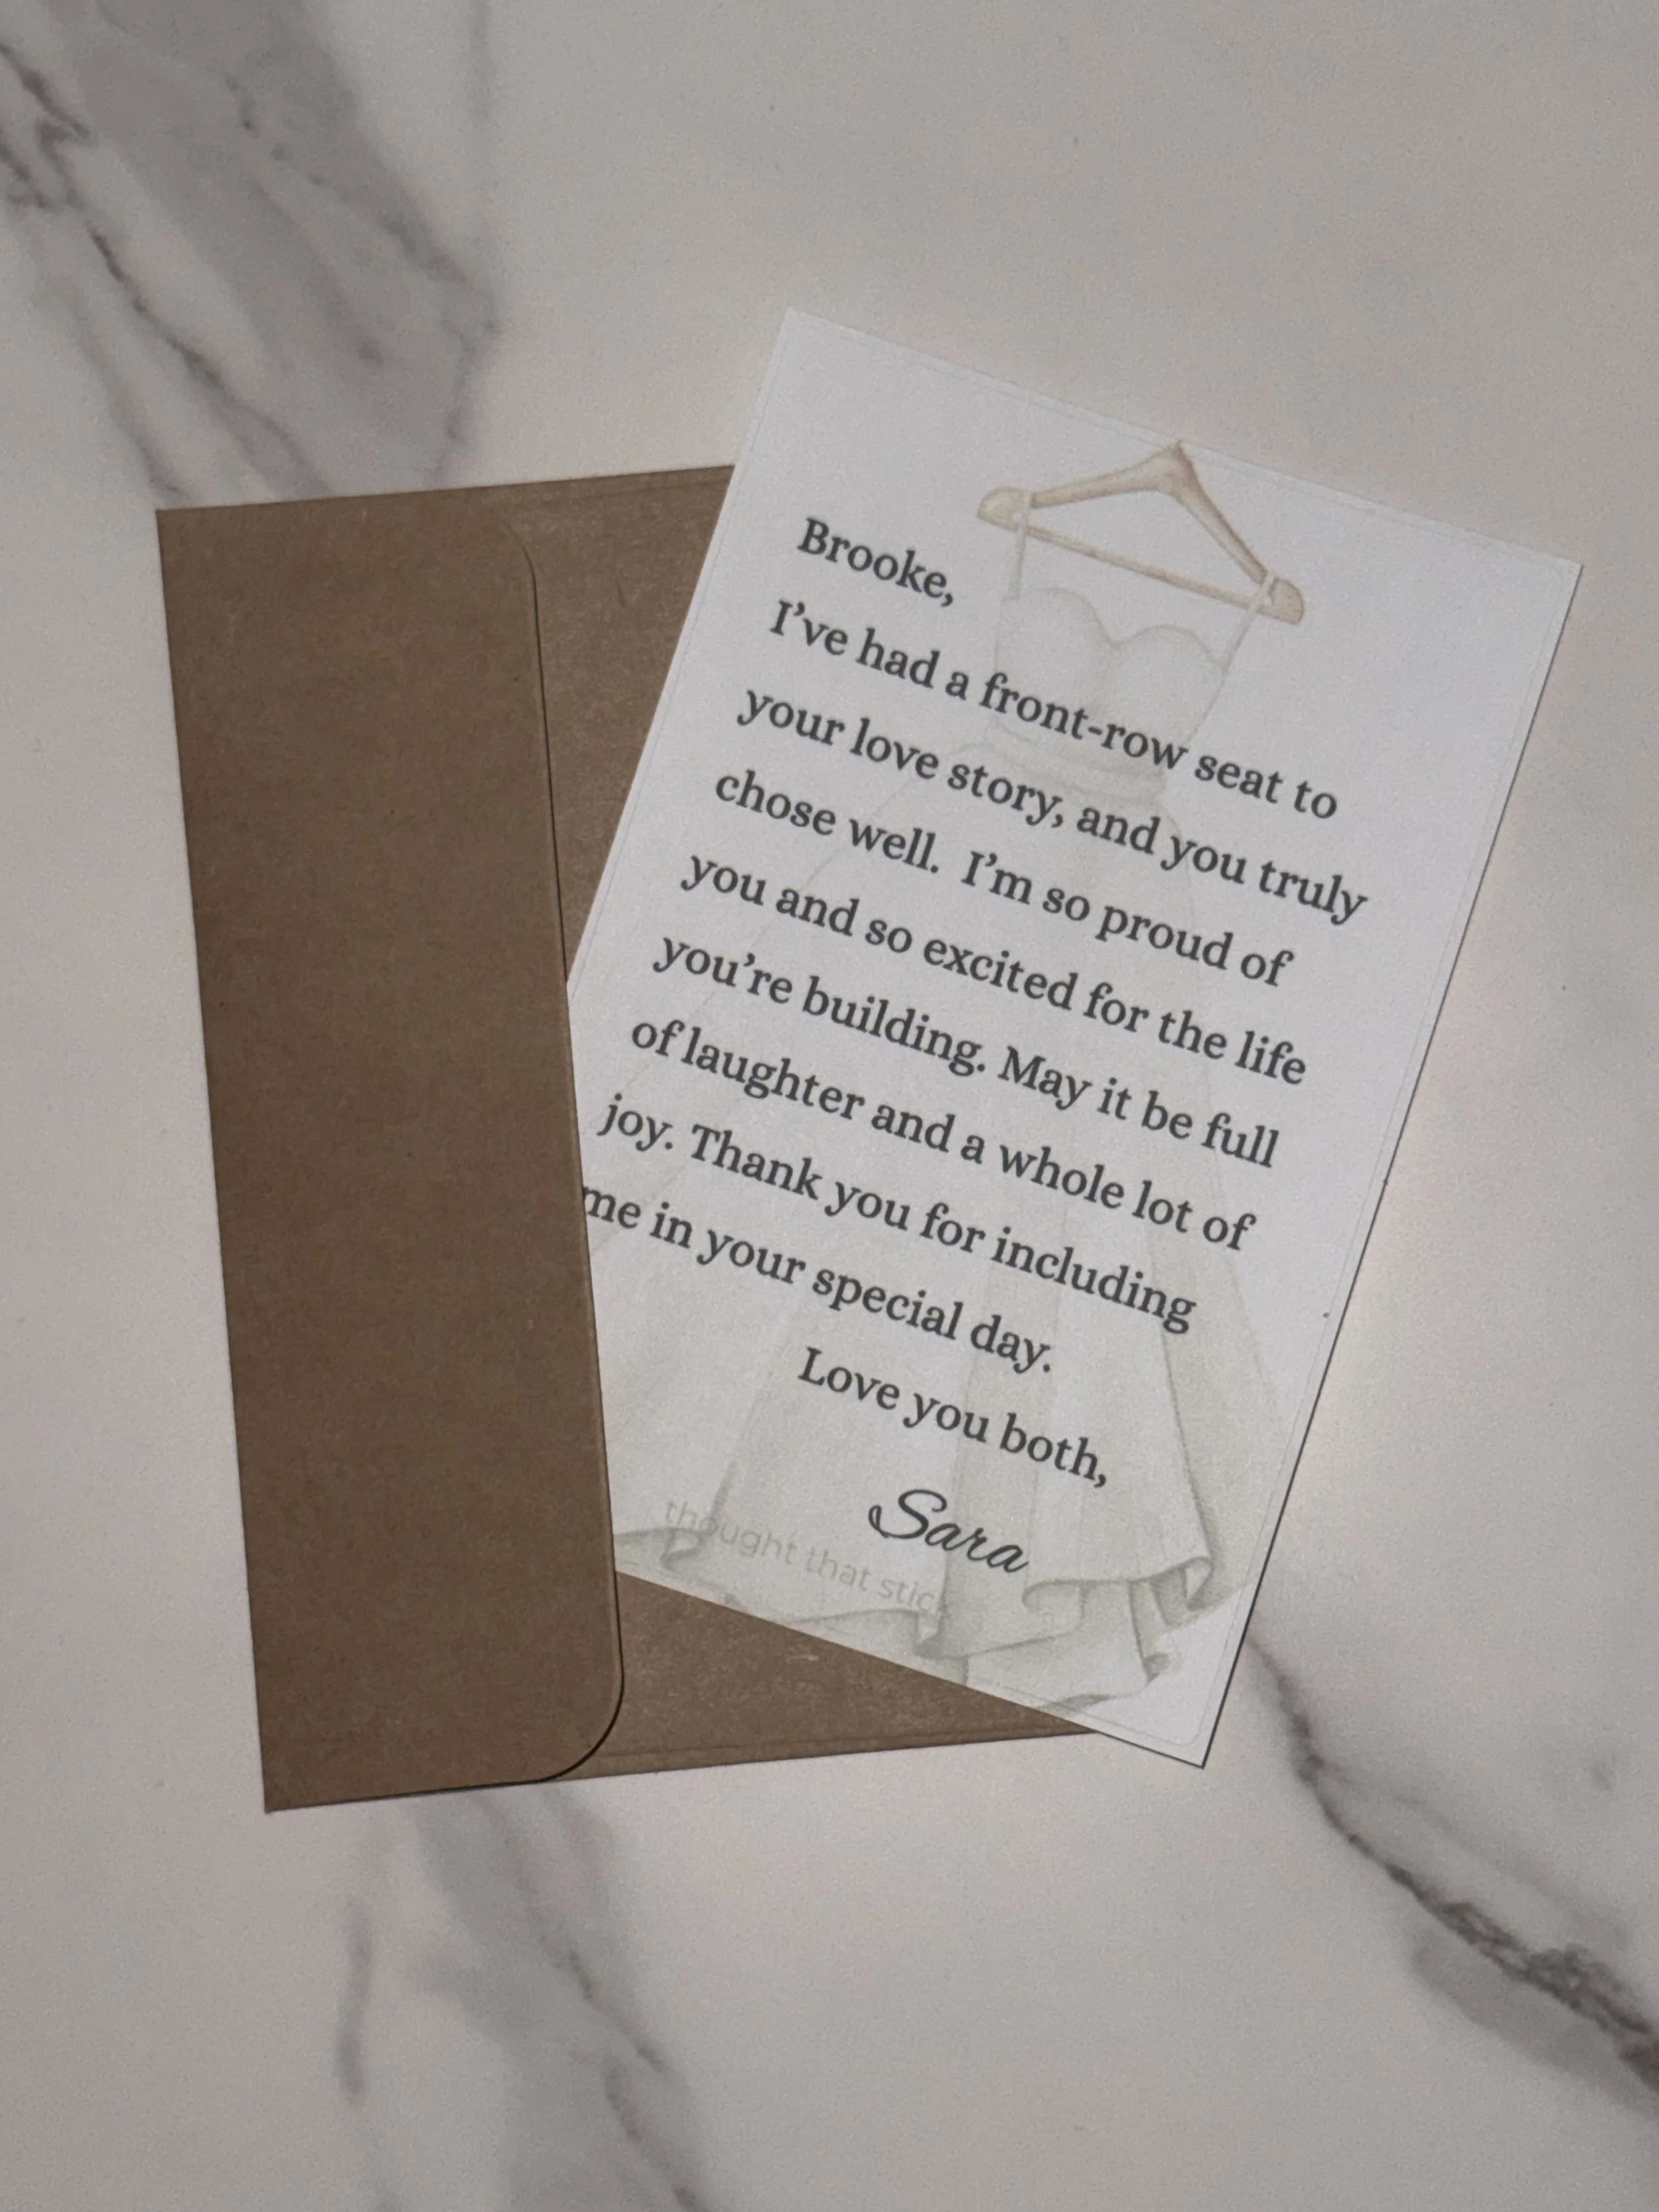 Brooke,
I've had a front-row seat to
your love story, and you truly
chose well. I'm so proud of
you and so excited for the life
you're building. May it be full
of laughter and a whole lot of
joy. Thank you for including
me in your special day.
Love you both,
Sara
thought that stick